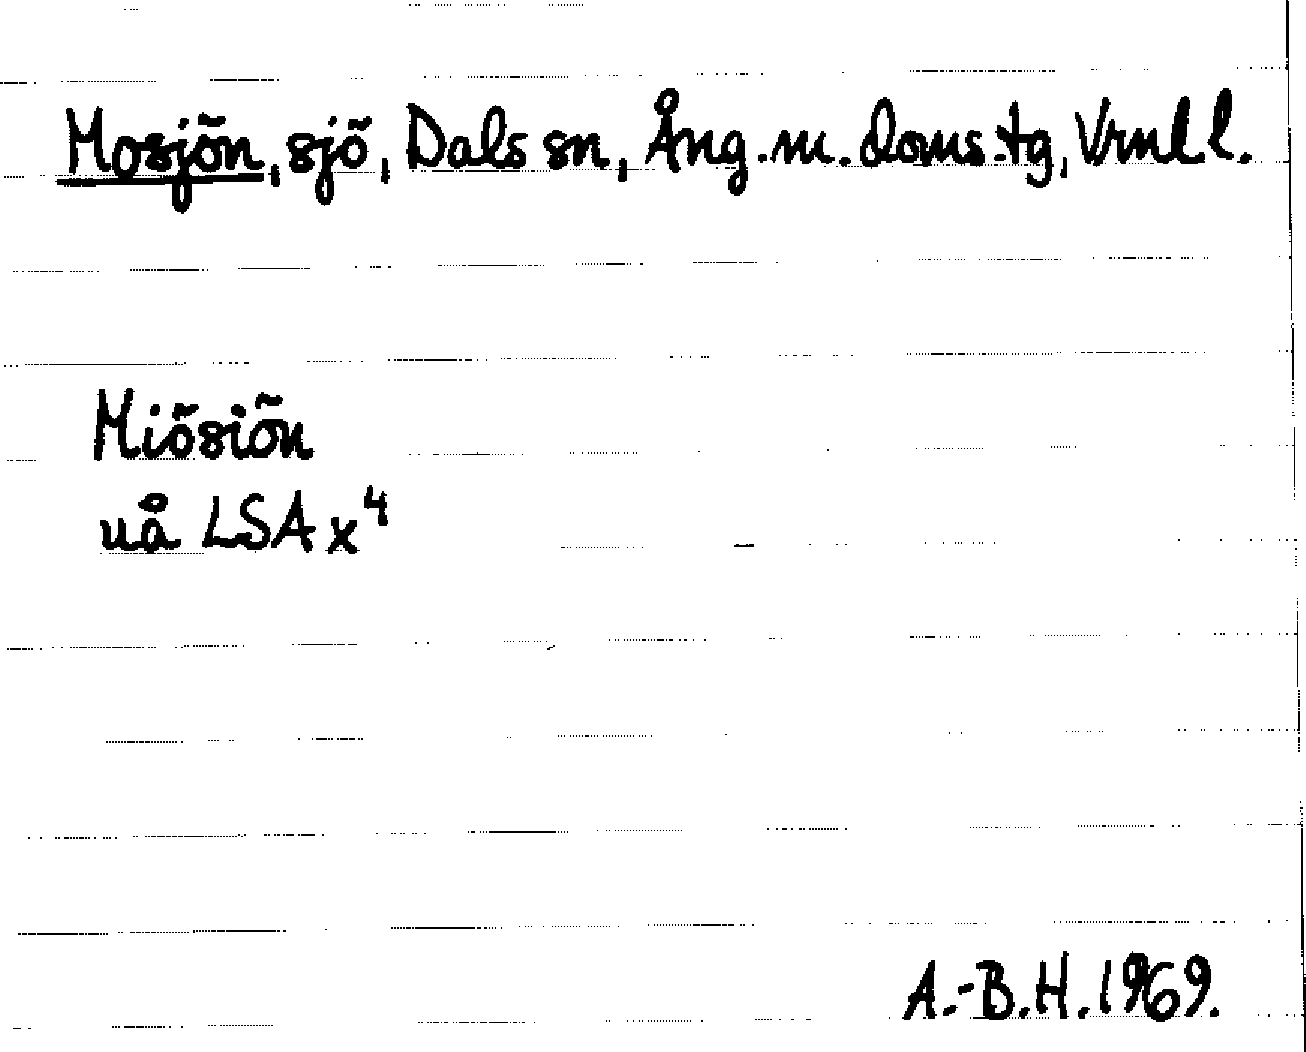 Mosjön, sjö, Dals sn, Ång. m. doms.tg, Vrml l.
Miösiön
uå LSA x⁴
A.-B.H. 1969.